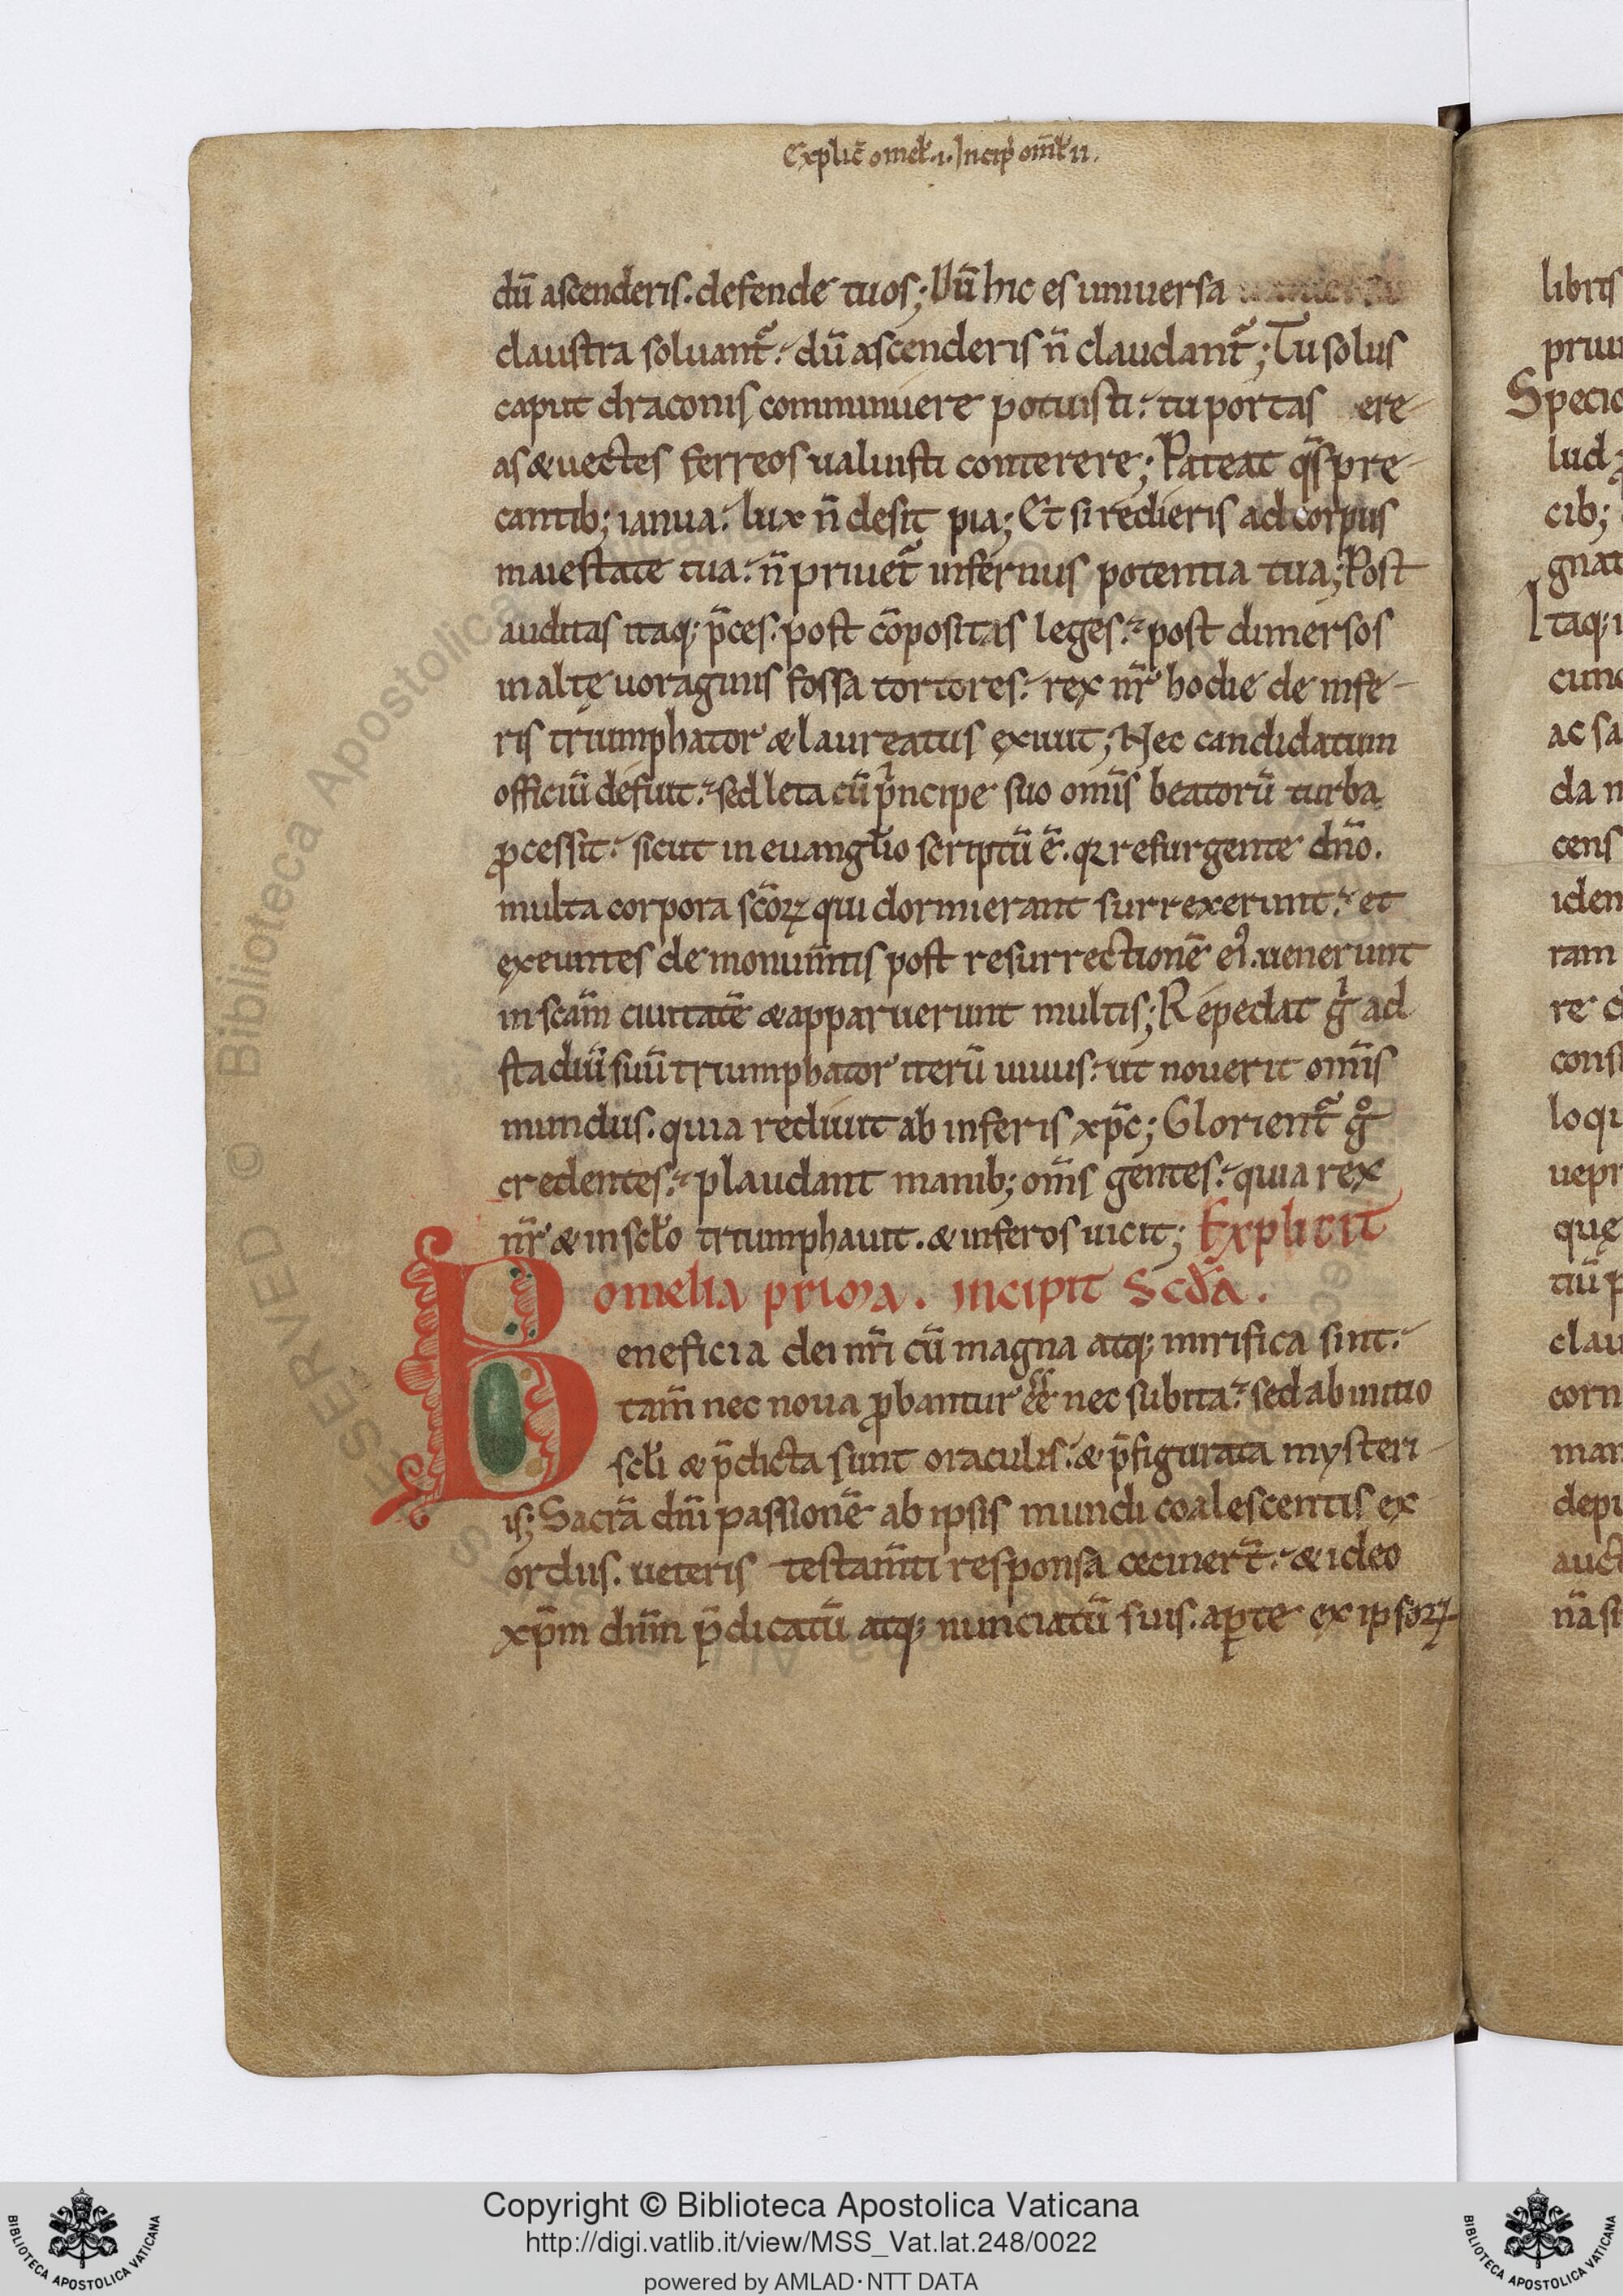 Explic̄ omel̄.i. Incip̄ om̄l̄ ii.
dū ascenderis. defende tuos; Dū hic es uniuersa
claustra soluant᷑. dū ascenderis n̄ claudant᷑; Tu solus
caput draconis comminuere potuisti. tu portas ere-
as & uectes ferreos ualuisti conterere; Pateat q̄s pre-
cantib; ianua. lux n̄ desit pia; Et si redieris ad corpus
maiestate tua. n̄ priuet᷑ infernus potentia tua; Post
auditas itaq; p̄ces. post cōpositas leges. post dimersos
in altę uoraginis fossa tortores. rex nr̄ hodie de infe-
ris triumphator & laureatus exiuit; Nec candidatum
officiū defuit. sed leta cū pͥncipe suo om̄is beatorū turba
ꝓcessit. sicut in euanglio scriptū ē. qꝛ resurgente dn̄o.
multa corpora scōꝝ qui dormierant surrexerunt. et
exeuntes de monum̄tis post resurrectionē eiꝰ. uenerunt
in scām ciuitatē & apparuerunt multis; Repedat gͥ ad
stadiū suū triumphator iterū uiuus. ut nouerit om̄is
mundus. quia rediuit ab inferis xp̄c; Glorient᷑ gͦ
credentes. plaudant manib; om̄s gentes. quia rex
nr̄ & in scl̄o triumphauit. & inferos uicit; Explicit
omelia prima. incipit Scd̄a.
Beneficia dei nr̄i cū magna atq; mirifica sint.
tam̄ nec noua ꝓbantur ēē nec subita. sed ab initio
scl̄i & p̄dicta sunt oraculis. & p̄figurata mysteri-
is; Sacrā dn̄i passionē ab ipsis mundi coalescentis ex
ordus. ueteris testam̄ti responsa cecinert̄. & ideo
xp̄m dn̄m p̄dicatū atq; nunciatū suis. aꝑte ex ipsoꝝ-
libris
priu
Specio
lud
cib;
gnat
Itaq;
cunc
ac sa
da
cens
iden
ram
re
cons
loqu
uepr
quę
tiū
clau
corn
man
depu
auct
nā si
© Biblioteca Apostolica
Copyright © Biblioteca Apostolica Vaticana
http://digi.vatlib.it/view/MSS_Vat.lat.248/0022
powered by AMLAD·NTT DATA
BIBLIOTECA APOSTOLICA VATICANA
BIBLIOTECA APOSTOLICA VATICANA